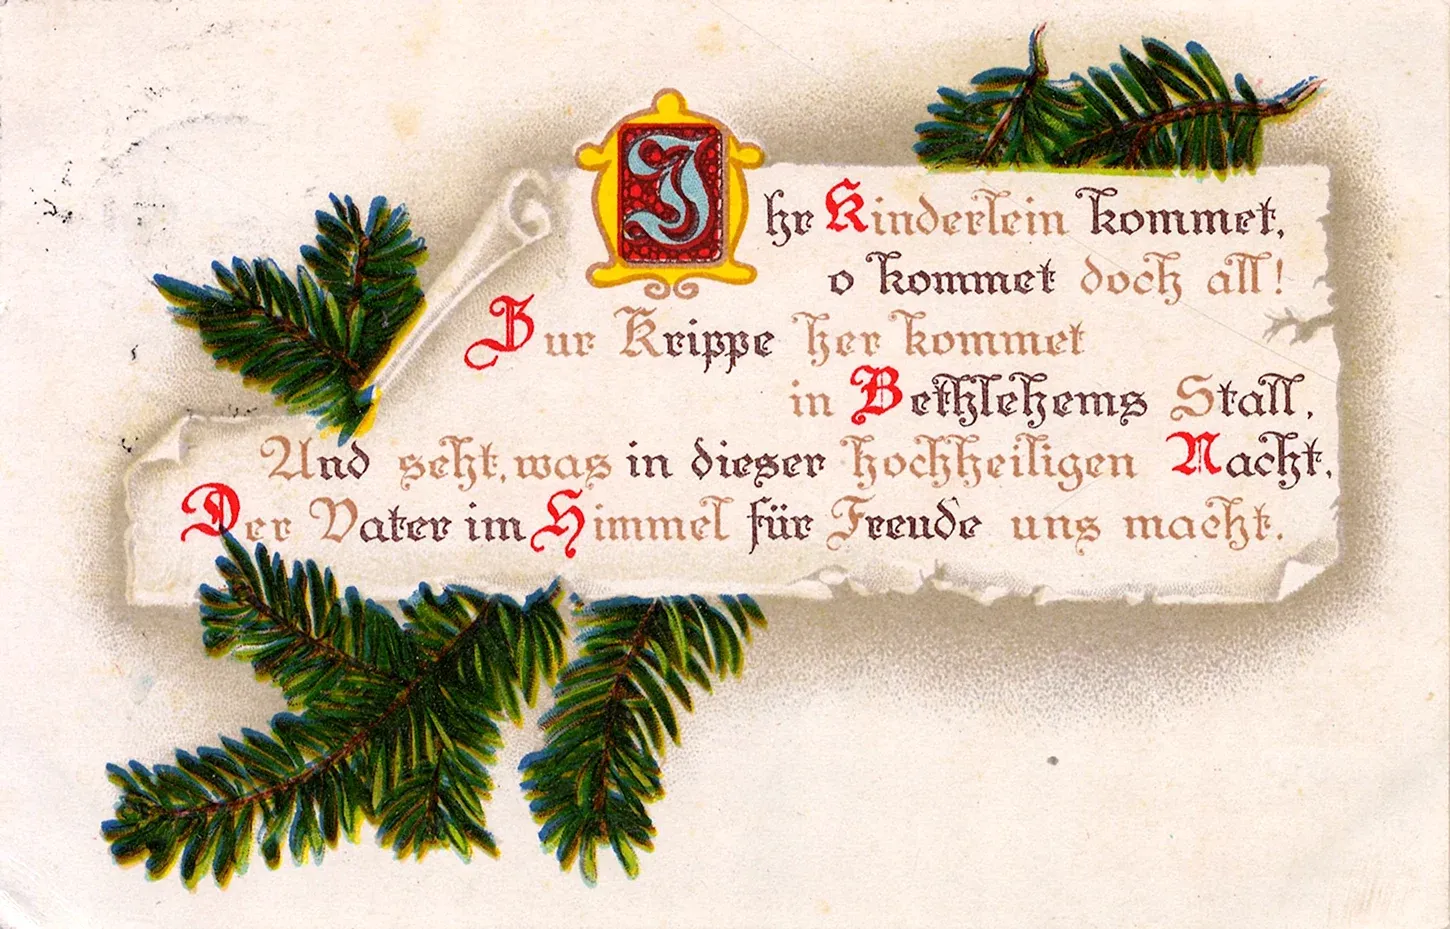 Ihr Kinderlein kommet,
o kommet doch all!
Zur Krippe her kommet
in Bethlehems Stall,
Und seht, was in dieser hochheiligen Nacht,
Der Vater im Himmel für Freude uns macht.